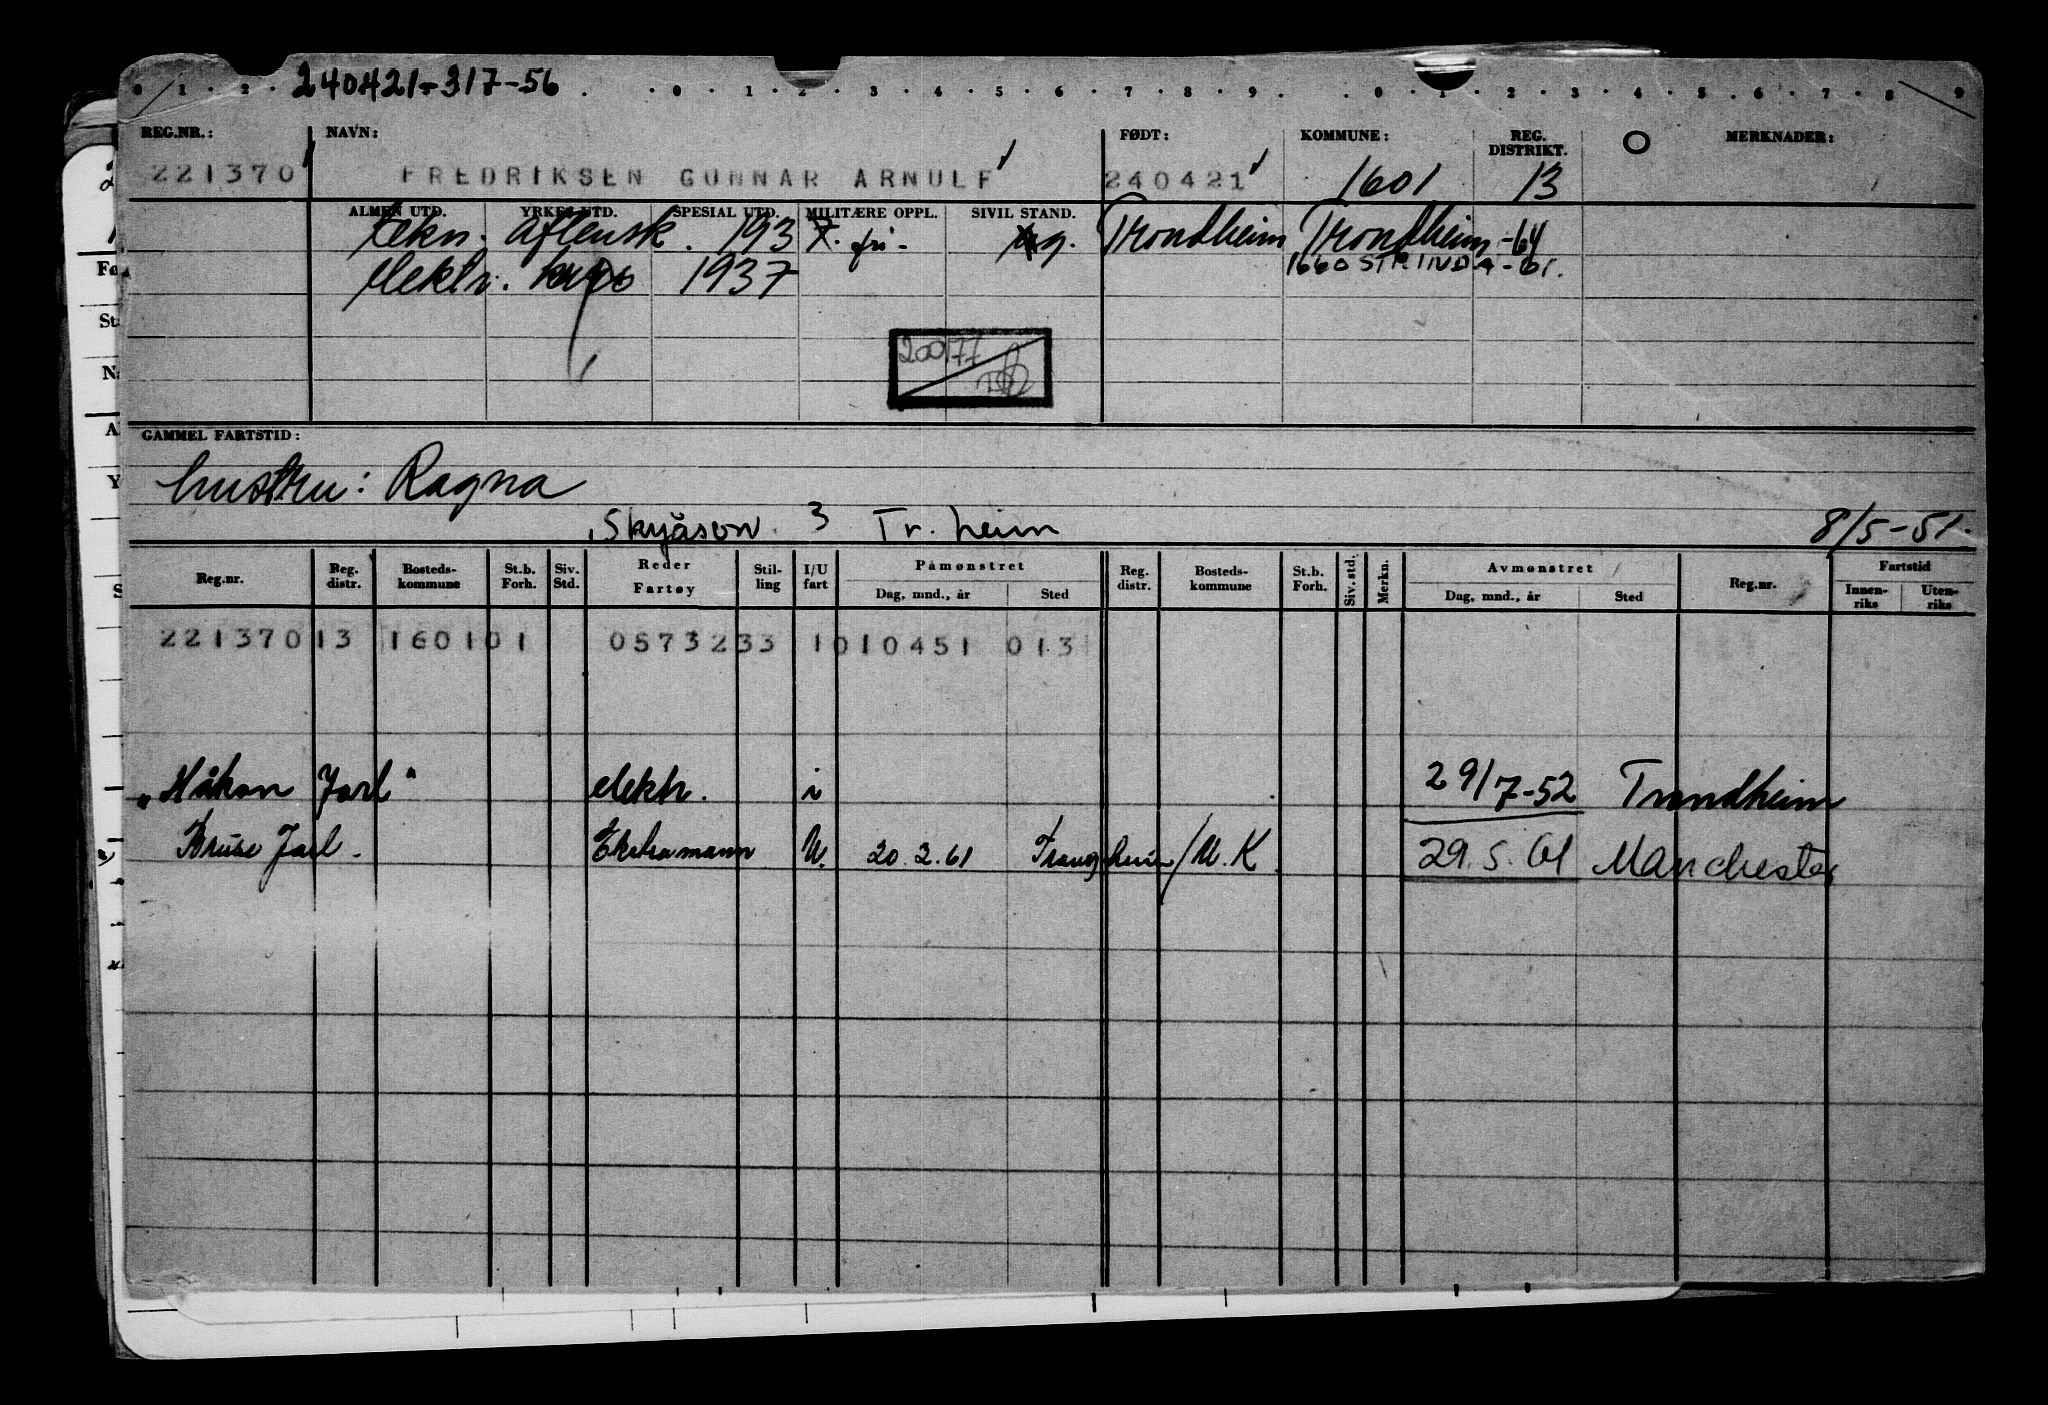 240421-317-56
0 1 2 0 1 2 3 4 5 6 7 8 9 0 1 2 3 4 5 6 7 8 9
REG.NR.: NAVN: FØDT: KOMMUNE: REG. DISTRIKT. O MERKNADER:
221370 FREDRIKSEN GUNNAR ARNULF 240421 1601 13
ALMEN UTD. YRKES UTD. SPESIAL UTD. MILITÆRE OPPL. SIVIL STAND.
tekn. aftensk. 1937. fri- g. Trondheim Trondheim -64
elektr. 1937 1660 STRINDA - 61.
200177
GAMMEL FARTSTID:
hustru: Ragna
Skyåsvn. 3 Tr.heim 8/5-51.
Reg.nr. Reg. distr. Bosteds-kommune St.b. Forh. Siv. Std. Reder Fartøy Stil-ling I/U fart Påmønstret Dag, mnd., år Sted Reg. distr. Bosteds-kommune St.b. Forh. Siv. std. Merkn. Avmønstret Dag, mnd., år Sted Reg.nr. Fartstid Innen-riks Uten-riks
221370 13 1601 01 0573233 1010451 013
"Håkon Jarl" elektr. i 29/7-52 Trondheim
Bruse Jarl. Ekstramann U. 20.2.61 /U.K 29.5.61 Manchester